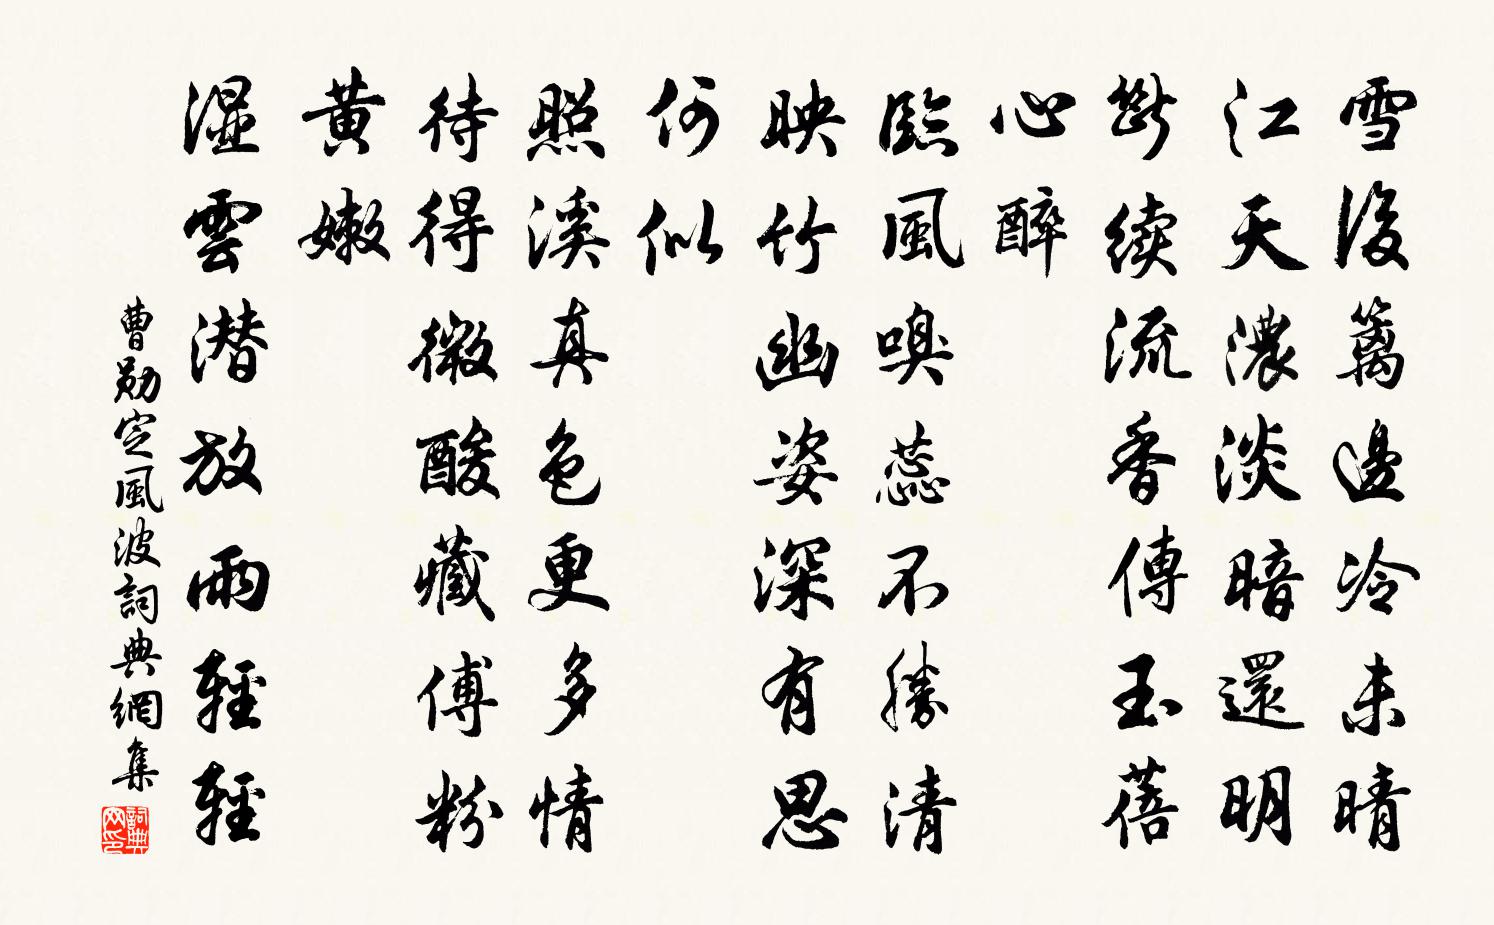 雪後籬邊冷未晴
江天濃淡暗還明
斷續流香傳玉蓓
心醉
臨風嗅蕊不勝清
映竹幽姿深有思
何似
照溪真色更多情
待得微酸藏傅粉
黃嫩
濕雲潜放雨輕輕
曹勛定風波詞典網集
詞典
网印